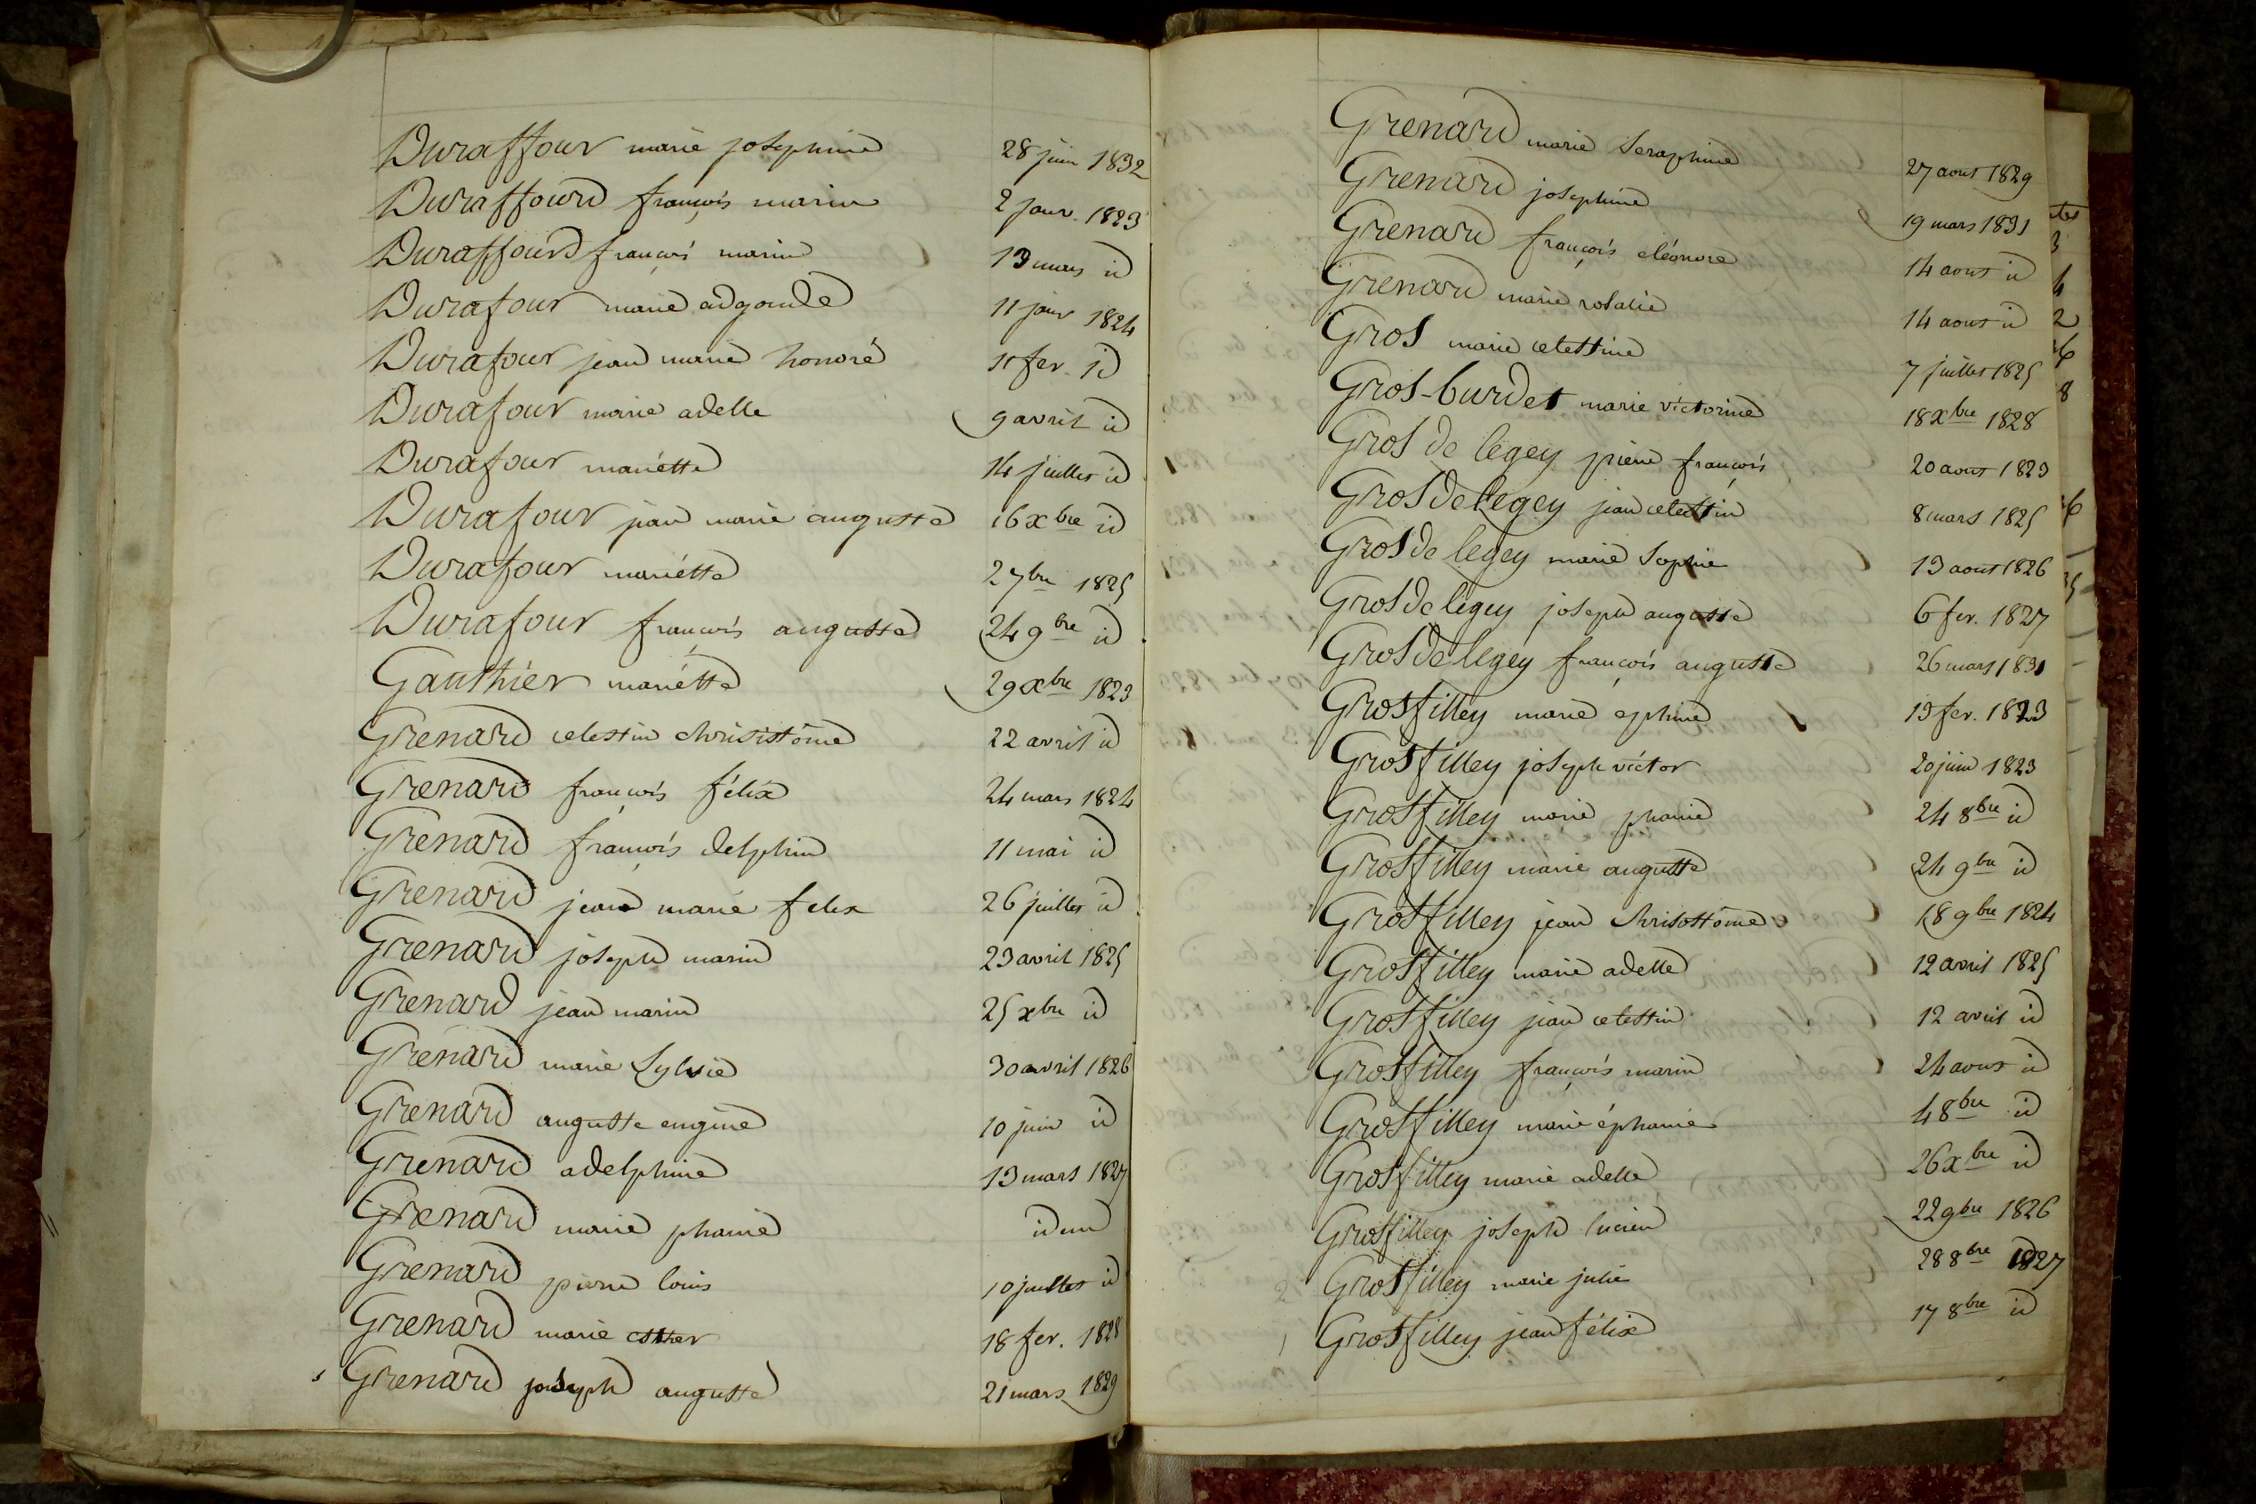 Duraffour marie josephine 28 juin 1832
Duraffourd françois marin 2 janv. 1823
Duraffourd françois marin 13 mars id
Durafour marie adgonde 11 janv 1824
Durafour jean marie honoré 11 fev. id
Durafour marie adelle 9 avril id
Durafour mariette 14 juillet id
Durafour jean marie auguste 16 xbre id
Durafour mariétte 2 7bre 1825
Durafour françois auguste 24 9bre id
Gauthier mariétte 29 xbre 1823
Grenard celestin chrisistôme 22 avril id
Grenard françois félix 24 mars 1824
Grenard françois delphin 11 mai id
Grenard jean marie felix 26 juillet id
Grenard joseph marin 23 avril 1825
Grenard jean marin 25 xbre id
Grenard marie Sylvie 30 avril 1826
Grenard auguste eugine 10 juin id
Grenard adelphine 13 mars 1827
Grenard marie phanie idem
Grenard pierre louis 10 juillet id
Grenard marie esther 18 fev. 1828
Grenard joseph auguste 21 mars 1829
Grenard marie Seraphine 27 aout 1829
Grenard josephine 19 mars 1831
Grenard françois eléonore 14 aout id
Grenard marie rosalie 14 aout id
Gros marie celestine 7 juillet 1825
Gros-burdet marie victorine 18 xbre 1828
Gros de legey pierre françois 20 aout 1823
Gros de legey jean celestin 8 mars 1825
Gros de legey marie Sophie 13 aout 1826
Gros de legey joseph auguste 6 fev. 1827
Gros de legey françois auguste 26 mars 1831
Grosfilley marie ephine 13 fev. 1823
Grosfilley joseph victor 20 juin 1823
Grosfilley marie phanie 24 8bre id
Grosfilley marie auguste 24 9bre id
Grosfilley jean chrisostôme 18 9bre 1824
Grosfilley marie adelle 12 avril 1825
Grosfilley jean celestin 12 avril id
Grosfilley françois marin 24 aout id
Grosfilley marie éphanie 4 8bre id
Grosfilley marie adelle 26 xbre id
Grosfilley joseph lucien 22 9bre 1826
Grosfilley marie julie 28 8bre 1827
Grosfilley jean félix 17 8bre id